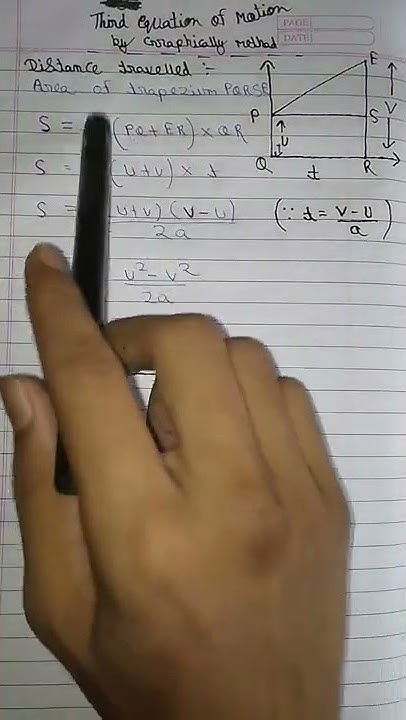 Third Equation of Motion
by Graphically Method
PAGE
DATE
Distance travelled :-
Area of trapezium PQRSE
S = (PQ + ER) × QR
S = (u+v) × t
S = (u+v) (v-u) / 2a (∵ t = v-u / a)
v² - v² / 2a
E
P
S
V
U
Q
R
t